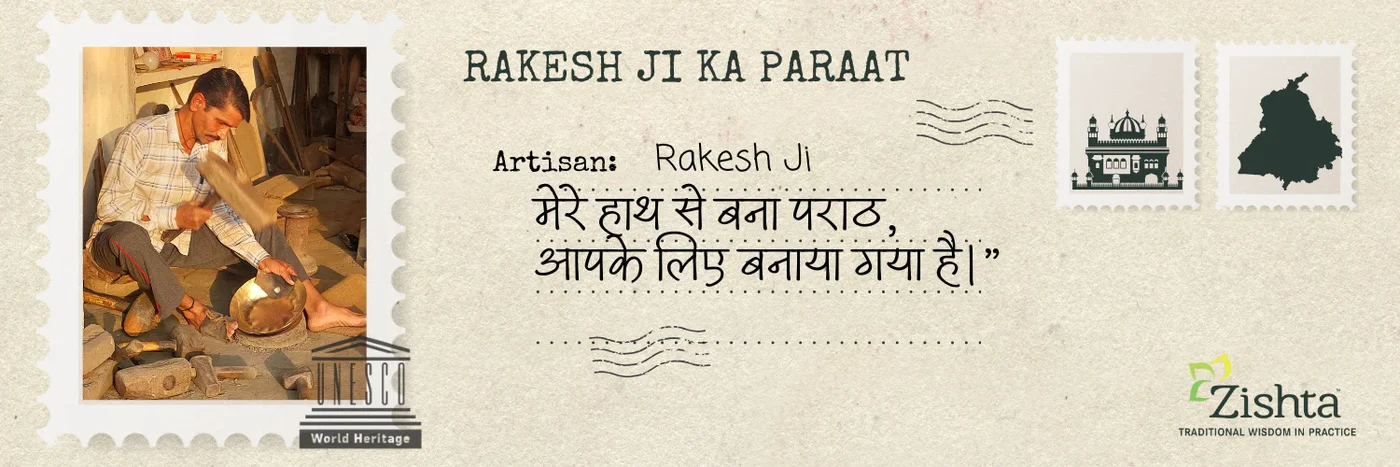 RAKESH JI KA PARAAT
Artisan: Rakesh Ji
मेरे हाथ से बना पराठ,
आपके लिए बनाया गया है।”
UNESCO
World Heritage
Zishta™
TRADITIONAL WISDOM IN PRACTICE